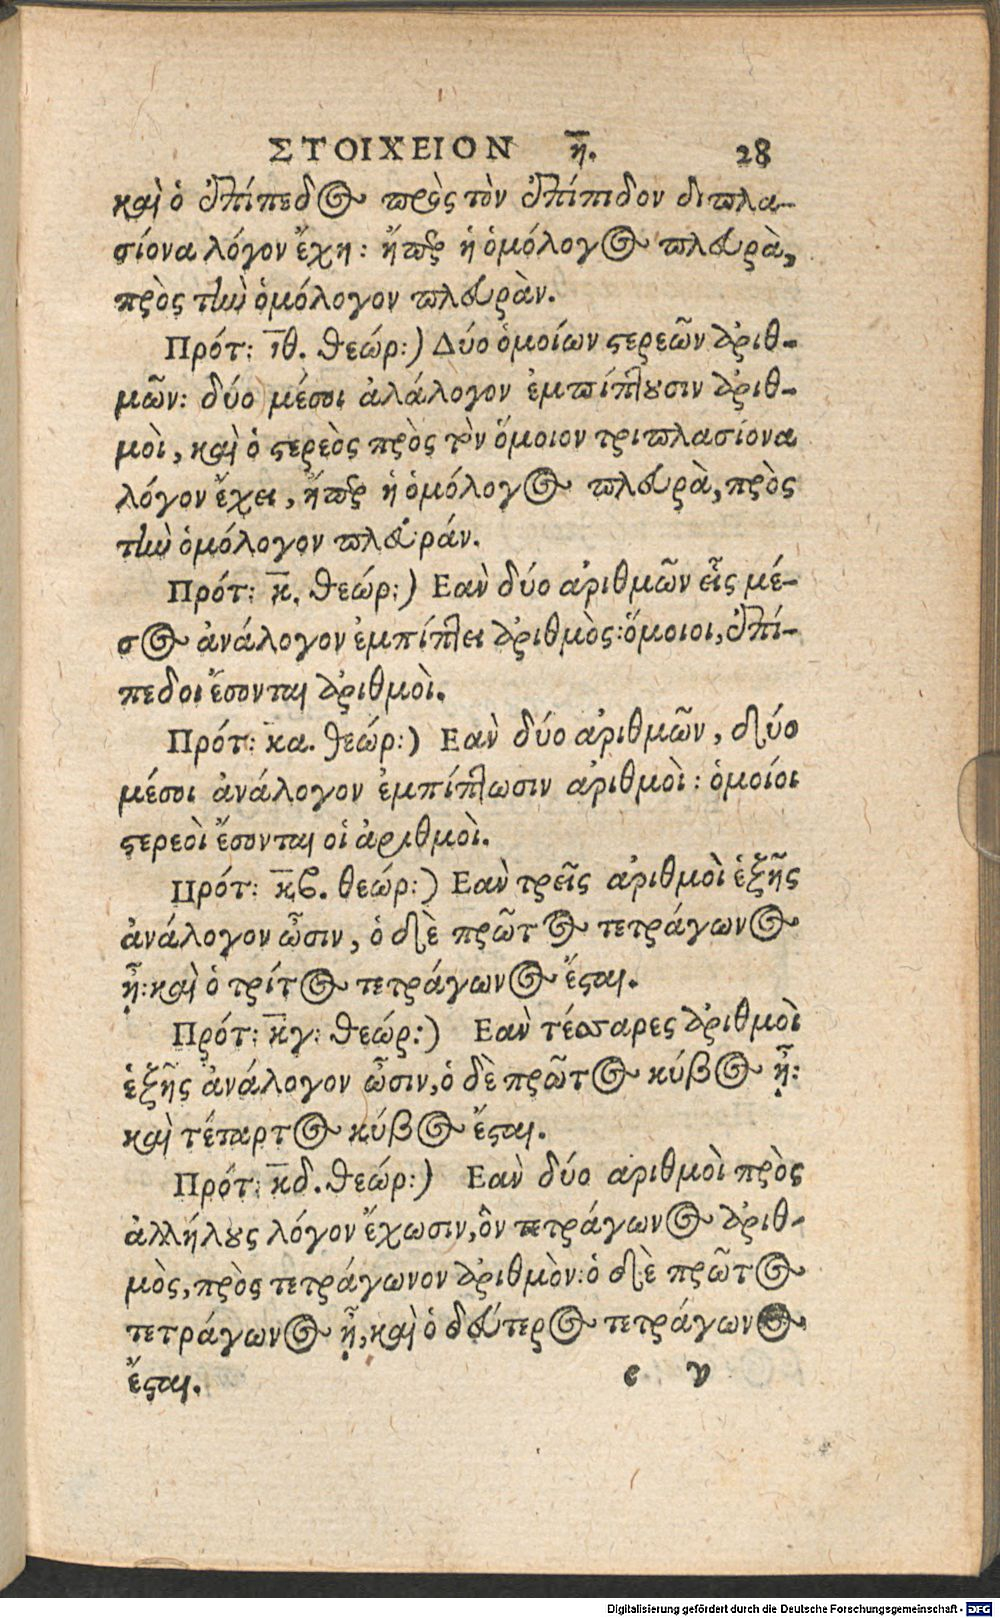 ΣΤΟΙΧΕΙΟΝ η̅. 28
καὶ ὁ ἐπίπεδος πρὸς τὸν ἐπίπιδον διπλα-
σίονα λόγον ἔχη: ἤπερ ἡ ὁμόλογος πλευρὰ,
πρὸς τὴν ὁμόλογον πλευρὰν.
Πρότ: ι̅θ. θεώρ:) Δύο ὁμοίων στερεῶν ἀριθ-
μῶν: δύο μέσοι ἀλάλογον ἐμπίπτουσιν ἀριθ-
μοὶ, καὶ ὁ στερεὸς πρὸς τὸν ὅμοιον τριπλασίονα
λόγον ἔχει, ἤπερ ἡ ὁμόλογος πλευρὰ, πρὸς
τὴν ὁμόλογον πλευράν.
Πρότ: κ̅. θεώρ:) Εαν̀ δύο αῤιθμῶν εἷς μέ-
σος ἀνάλογον ἐμπίπτει ἀριθμὸς: ὅμοιοι, ἐπί-
πεδοι ἔσονται ἀριθμοὶ.
Πρότ: κα. θεώρ:) Εαν̀ δύο αῤιθμῶν, δύο
μέσοι ἀνάλογον ἐμπίπτωσιν αῤιθμοὶ: ὁμοίοι
στερεοὶ ἔσονται οἱ ἀριθμοὶ.
Πρότ: κ̅β. θεώρ:) Εαν̀ τρεῖς αῤιθμοὶ ἑξῆς
ἀνάλογον ὦσιν, ὁ δὲ πρῶτος τετράγωνος
ᾖ: καὶ ὁ τρίτος τετράγωνος ἔσται.
Πρότ: κ̅γ: θεώρ:) Εαν̀ τέσσαρες ἀριθμοὶ
ἑξῆς ἀνάλογον ὦσιν, ὁ δὲ πρῶτος κύβος ᾖ:
καὶ τέταρτος κύβος ἔσται.
Πρότ: κ̅δ. θεώρ:) Εαν̀ δύο αριθμοὶ πρὸς
ἀλλήλους λόγον ἔχωσιν, ὃν τετράγωνος ἀριθ-
μὸς, πρὸς τετράγωνον ἀριθμὸν: ὁ δὲ πρῶτος
τετράγωνος ᾖ, καὶ ὁ δεύτερος τετράγωνος
ἔσται. e v
Digitalisierung gefördert durch die Deutsche Forschungsgemeinschaft - DFG